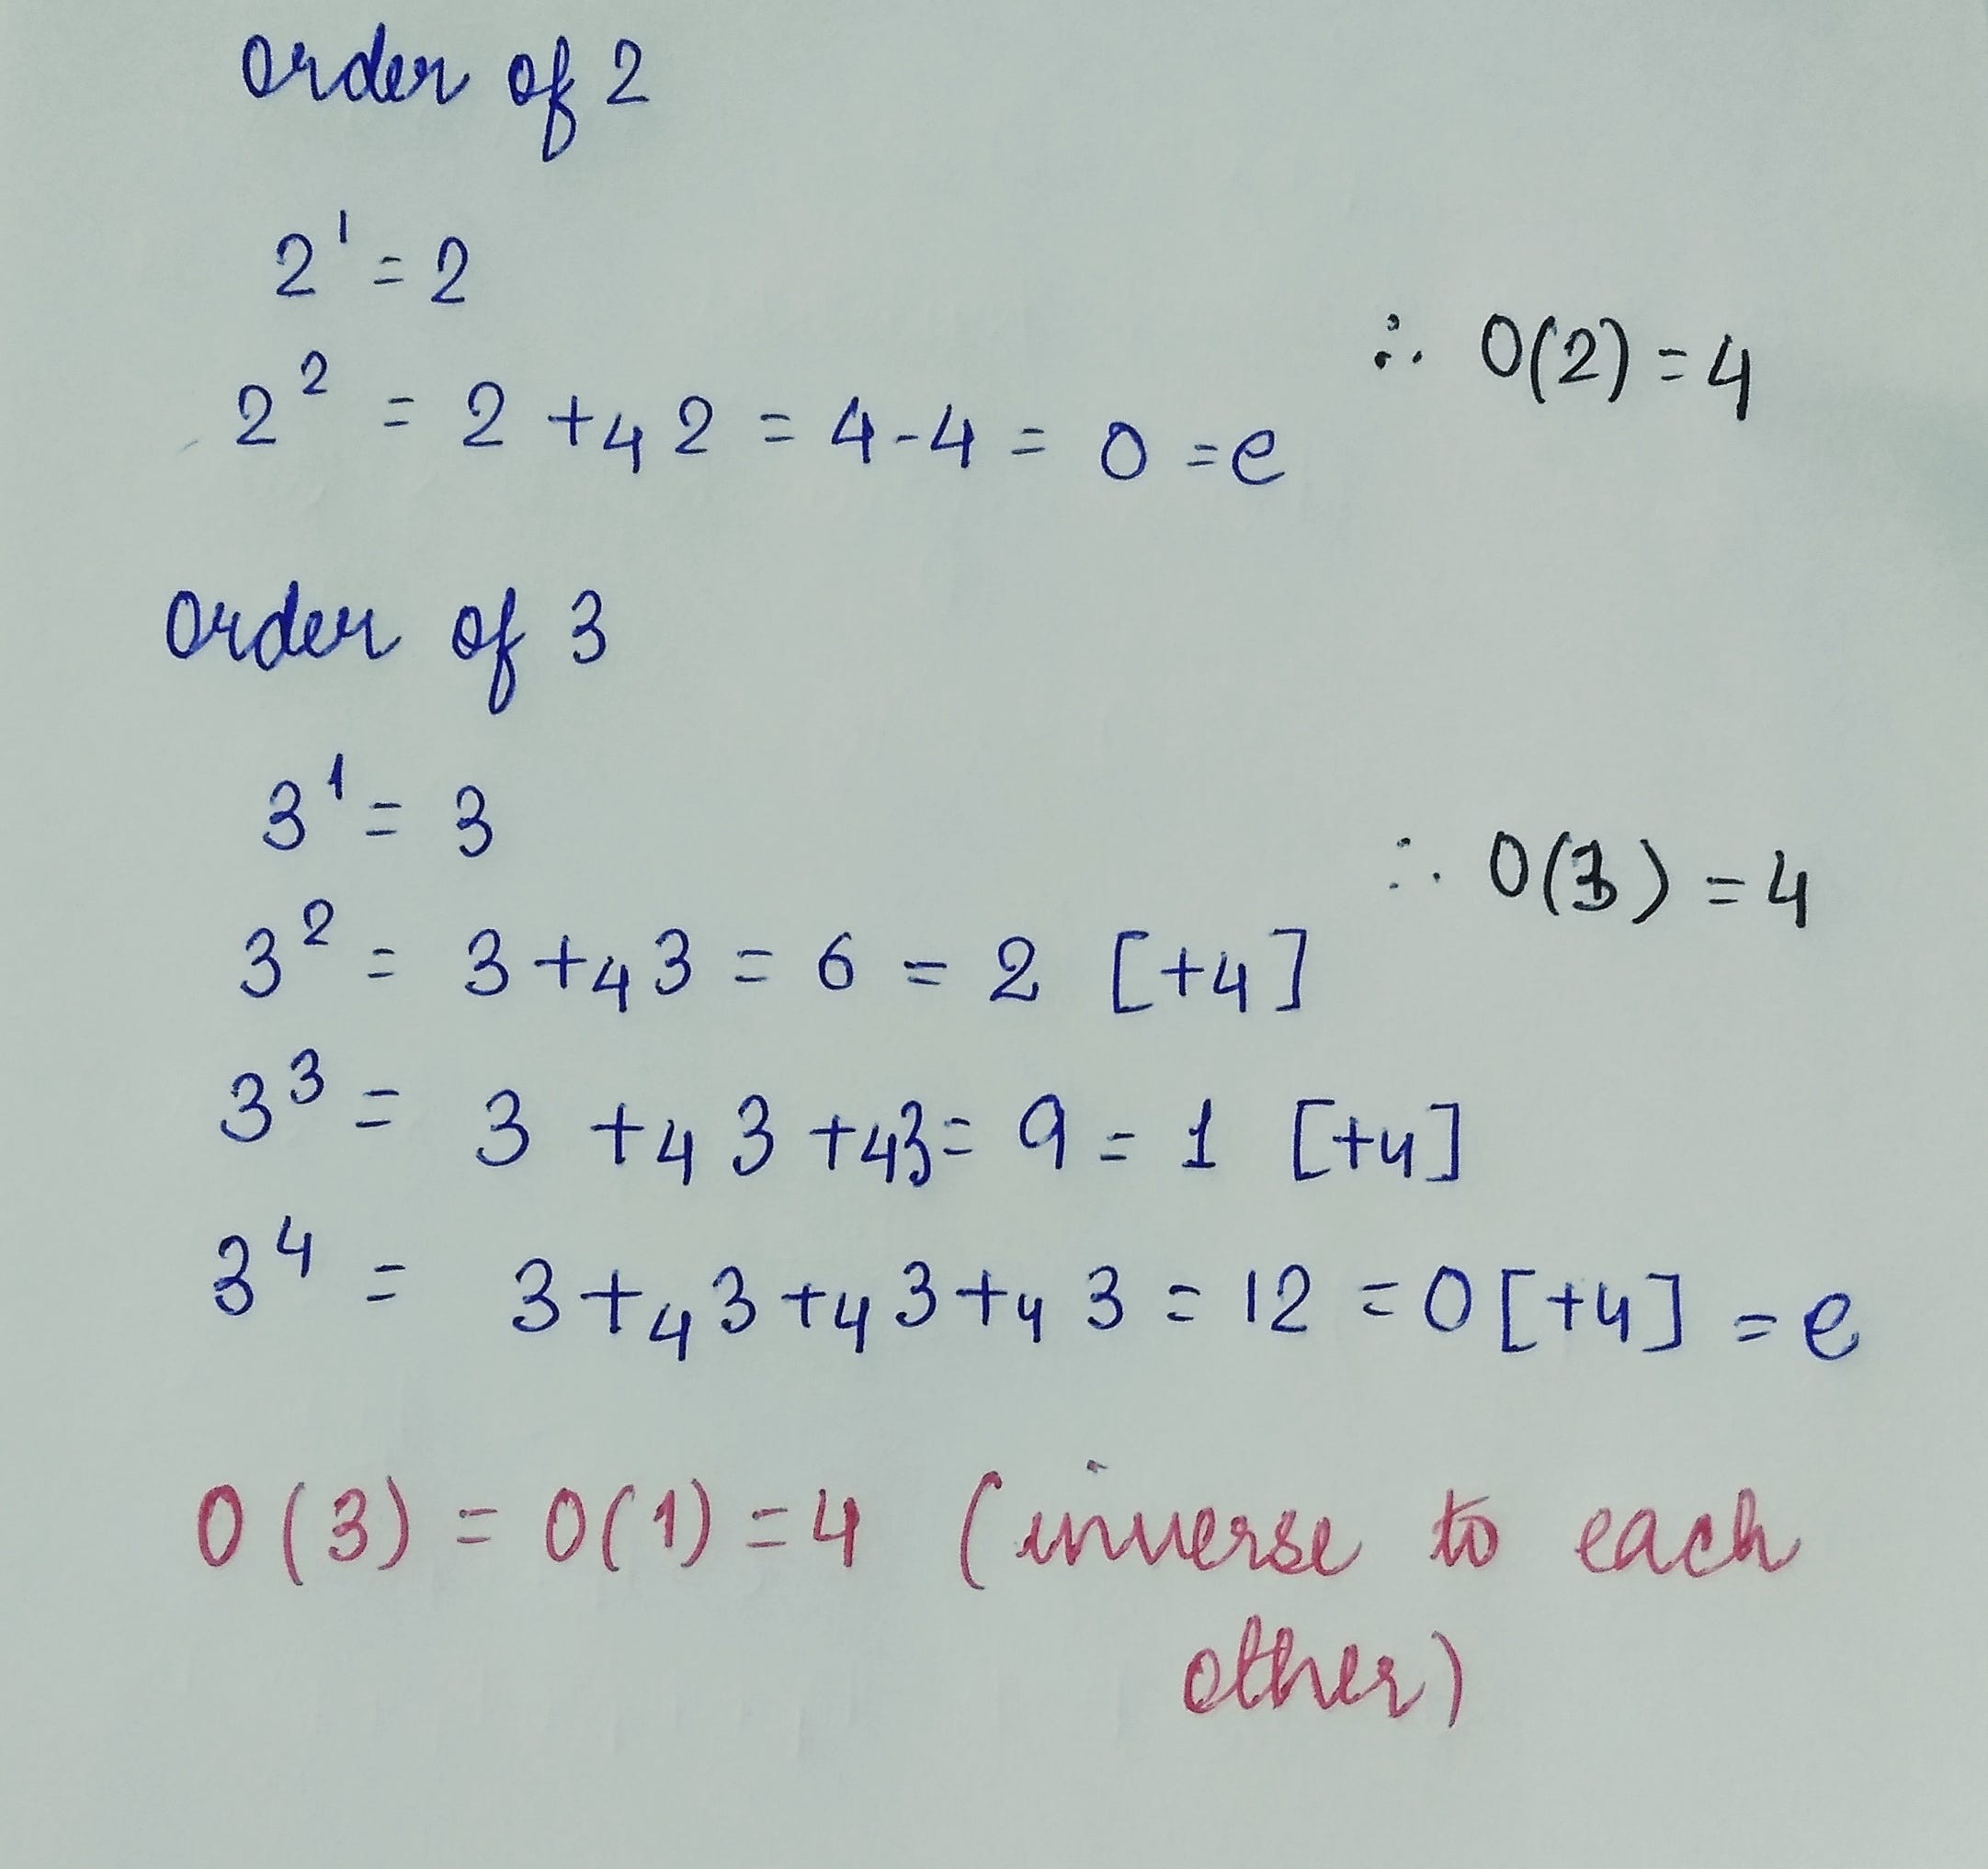 order of 2
2¹ = 2
∴ O(2) = 4
2² = 2 +₄ 2 = 4-4 = 0 = e
order of 3
3¹ = 3
∴ O(3) = 4
3² = 3 +₄ 3 = 6 = 2 [+₄]
3³ = 3 +₄ 3 +₄ 3 = 9 = 1 [+₄]
3⁴ = 3 +₄ 3 +₄ 3 +₄ 3 = 12 = 0 [+₄] = e
O(3) = O(1) = 4 (inverse to each
other)